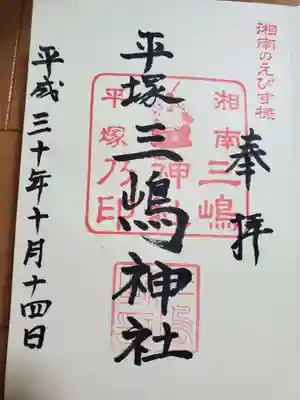 湘南のえびす様
奉拝
湘南三嶋
神社
平塚乃印
平塚三嶋神社
平成三十年十月十四日